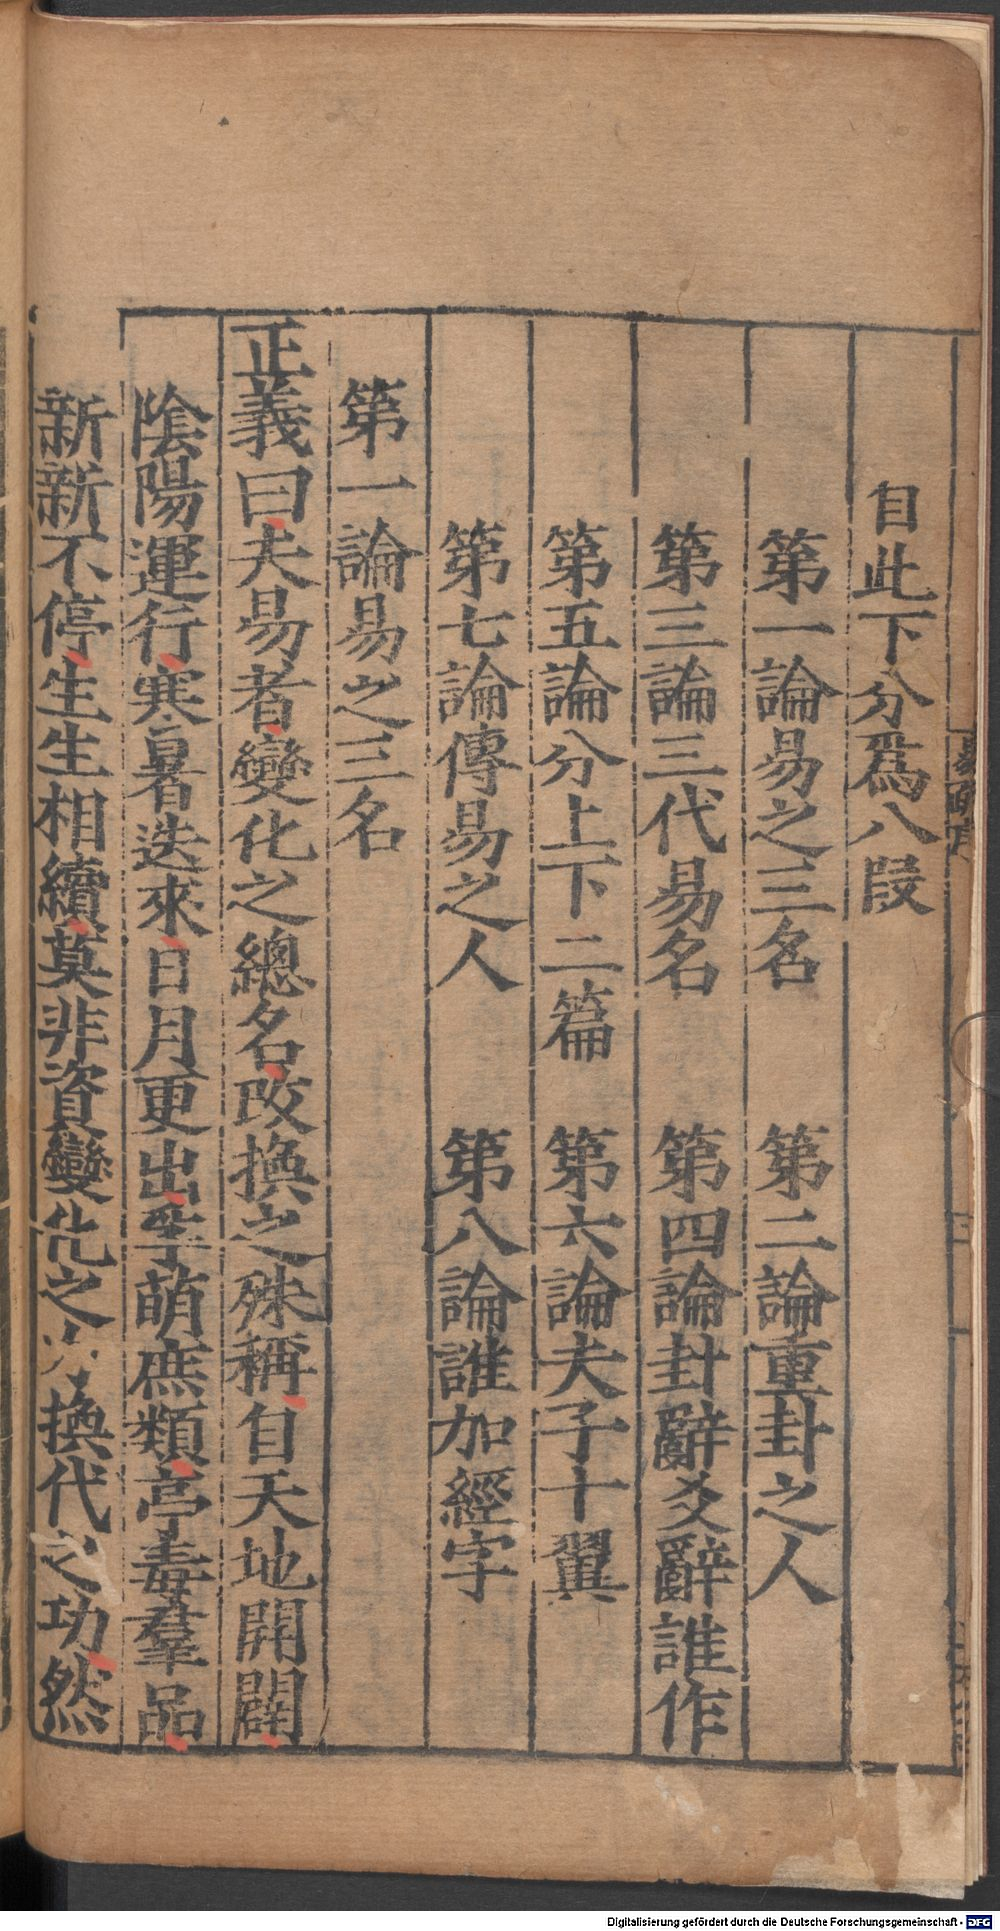 自此下分爲八段
第一論易之三名 第二論重卦之人
第三論三代易名 第四論卦辭爻辭誰作
第五論分上下二篇 第六論夫子十翼
第七論傳易之人 第八論誰加經字
第一論易之三名
正義曰夫易者變化之總名改換之殊稱自天地開闢
陰陽運行寒暑迭來日月更出孚萌庶類亭毒羣品
新新不停生生相續莫非資變化之力換代之功然
Digitalisierung gefördert durch die Deutsche Forschungsgemeinschaft - DFG